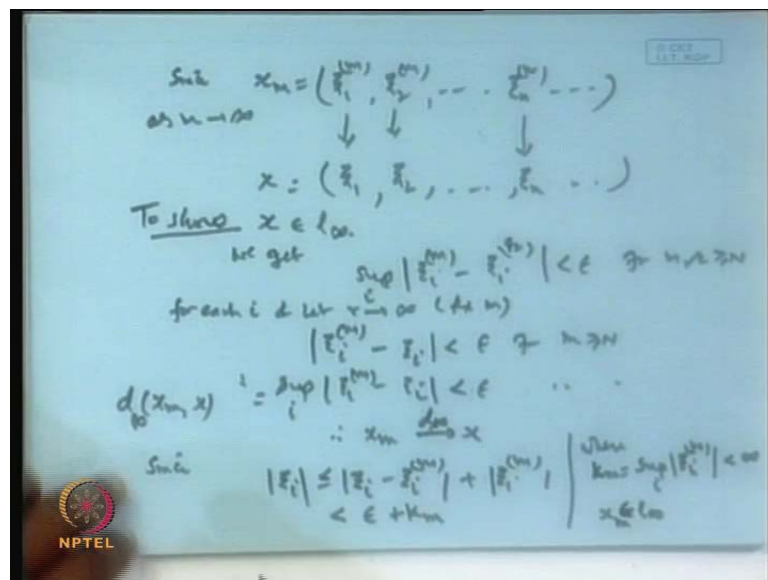 © CET
I.I.T. KGP
Since x_m = (ξ_1^(m), ξ_2^(m), .... ξ_n^(m) ...)
as n → ∞
↓ ↓ ↓
x = (ξ_1, ξ_2, ...., ξ_n ...)
To show x ∈ l_∞.
We get
sup_i |ξ_i^(m) - ξ_i^(r)| < ε for m, r ≥ N
for each i & let r → ∞ (fix m)
|ξ_i^(m) - ξ_i| < ε for m ≥ N
d_∞(x_m, x) = sup_i |ξ_i^(m) - ξ_i| < ε .. ..
∴ x_m →^{d_∞} x
Since |ξ_i| ≤ |ξ_i - ξ_i^(m)| + |ξ_i^(m)| | where
< ε + k_m | k_m = sup_i |ξ_i^(m)| < ∞
x_m ∈ l_∞
NPTEL